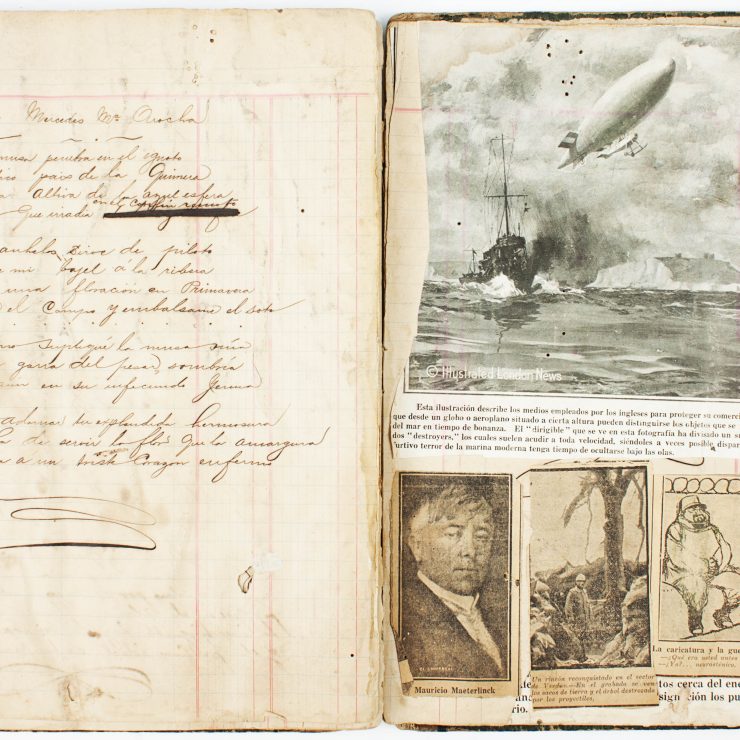 Mercedes Ma. Arocha
musa penetra en el ignoto
pais de la Quimera
Altiva de la azul esfera
Que irradia en el confín
anhelos sirve de piloto
mi bajel á la ribera
una floración en Primavera
el Campo y embalsame el soto
supliqué la musa mía
garra del pesar sombría
en su infecundo
adornar tu esplendida hermosura
de servir la flor que la amargura
a un triste Corazon enfermo
© Illustrated London News
Esta ilustración describe los medios empleados por los ingleses para proteger su comerci
que desde un globo o aeroplano situado a cierta altura pueden distinguirse los objetos que se
del mar en tiempo de bonanza. El "dirigible" que se ve en esta fotografía ha divisado un s
dos "destroyers," los cuales suelen acudir a toda velocidad, siéndoles a veces posible dispar
furtivo terror de la marina moderna tenga tiempo de ocultarse bajo las olas.
Mauricio Maeterlinck
Un rincón reconquistado en el sector
de Verdun.—En el grabado se ven
los sacos de tierra y el árbol destrozado
por los proyectiles.
La caricatura y la gue
—¿Qué era usted antes
—¿Yo?... neurasténico.
tos cerca del ene
sign ción los pu
rio.